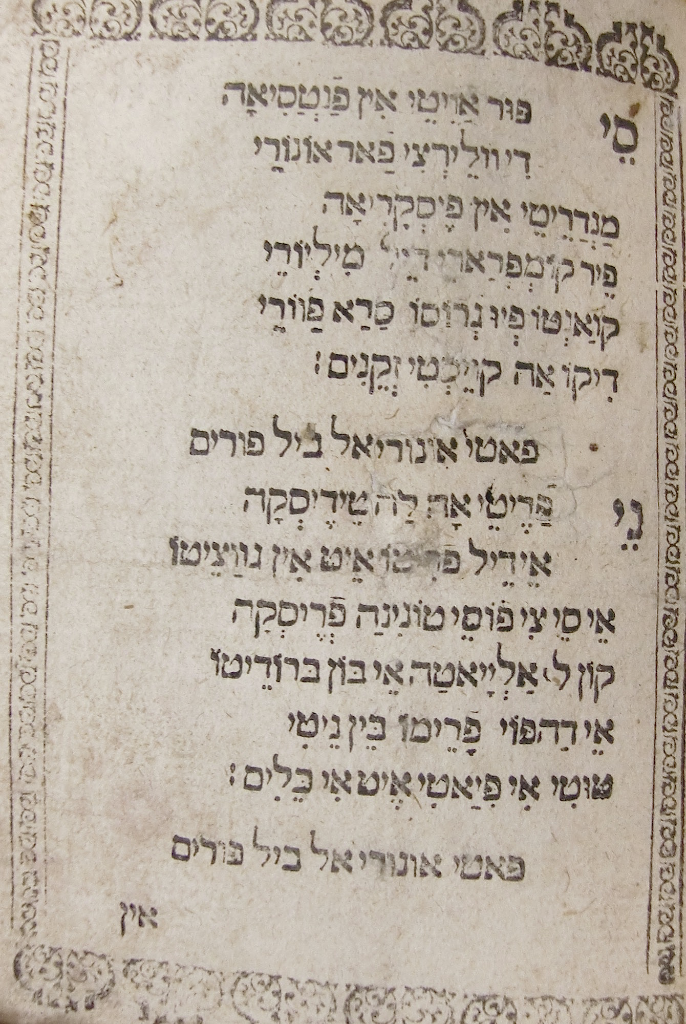 סֵי פּוּר אַוֵיטֵי אִין פַֿנְטַסִיאָה
דִי וולֵירְצִי פַאר אוֹנוֹרֵי
מַנְדַרֵיטֵי אִין פֵיסְקֵרִיאָה
פֵיר קוֹמְפְּרַארֵי דֵיל מִילְיוֹרֵי
קוַאנְטוֹ פְּיוּ גְרוֹסוֹ סַרַא פַווֹרֵי
דִיקוֹ אַה קוֵיסְטִי זְקֵנִים:
פאטי אונורי אל ביל פורים
נֵי פַּרֵיטֵי אָה לַה טֵידֵיסְקָה
אֵידֵיל פריטו אֵיט אִין גווַצֵיטוֹ
אֵי סֵי צִי פוֹסֵי טוֹנִינַה פְֿרֵיסְקָה
קוֹן ל אַלְיָיאַטַה אֵי בּוֹן בּרוֹדֵיטוֹ
אֵי דַהפּוֹי פָרֵימוֹ בֵּין נֵיטִי
טוּטִי אִי פִיַאטִי אֵיט אִי כֵּלִים:
פאטי אונורי אל ביל פורים
אין